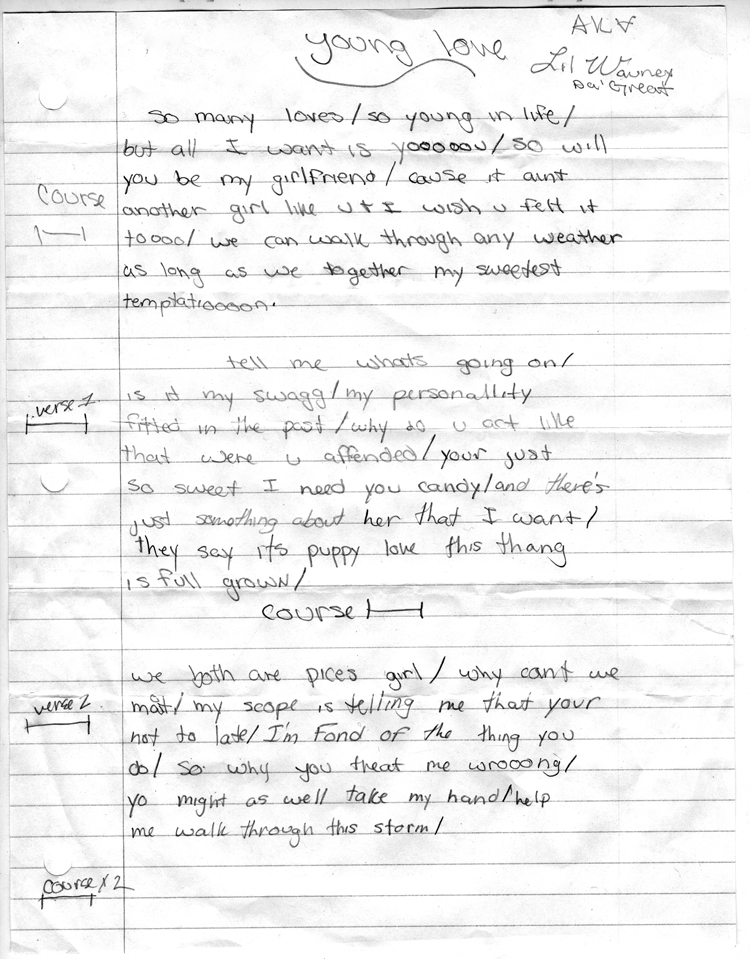 young love
AKA
Lil Wauney
Da' Great
so many loves/so young in life/
but all I want is yooooou/so will
you be my girlfriend/cause it aunt
Course
another girl like u + I wish u felt it
toooo/ we can walk through any weather
as long as we together my sweetest
temptatioooon.
tell me whats going on/
verse 1
is it my swagg/my personallity
fitted in the past/why do u act like
that were u affended/your just
so sweet I need you candy/and there's
just something about her that I want/
they say it's puppy love this thang
is full grown/
course
we both are pices girl/ why cant we
mait/ my scope is telling me that your
verse 2
not to late/ I'm Fond of the thing you
do/ so why you theat me wrooong/
yo might as well take my hand/help
me walk through this storm/
course x 2